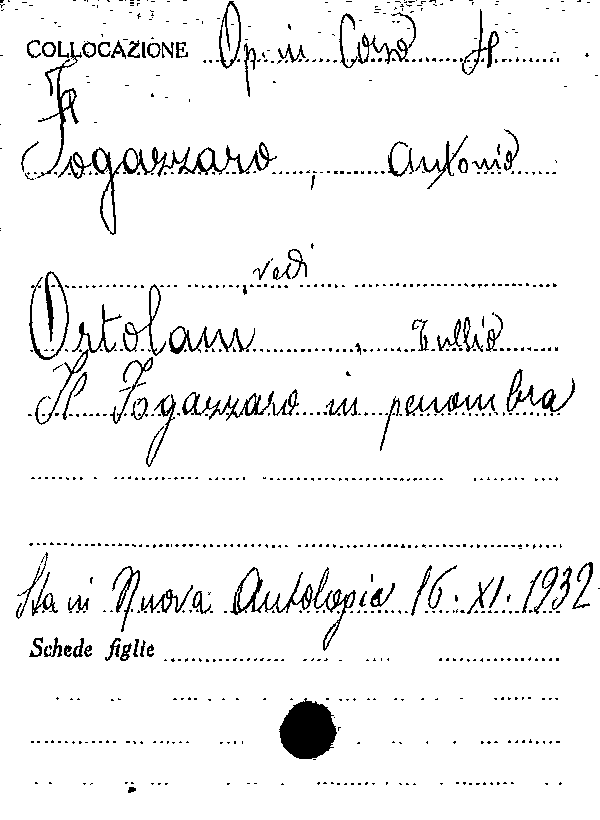 COLLOCAZIONE Op. in Corso It
Fogazzaro, Antonio
vedi
Ortolani, Tullio
Il Fogazzaro in penombra
Sta in Nuova Antologia 16.XI.1932
Schede figlie